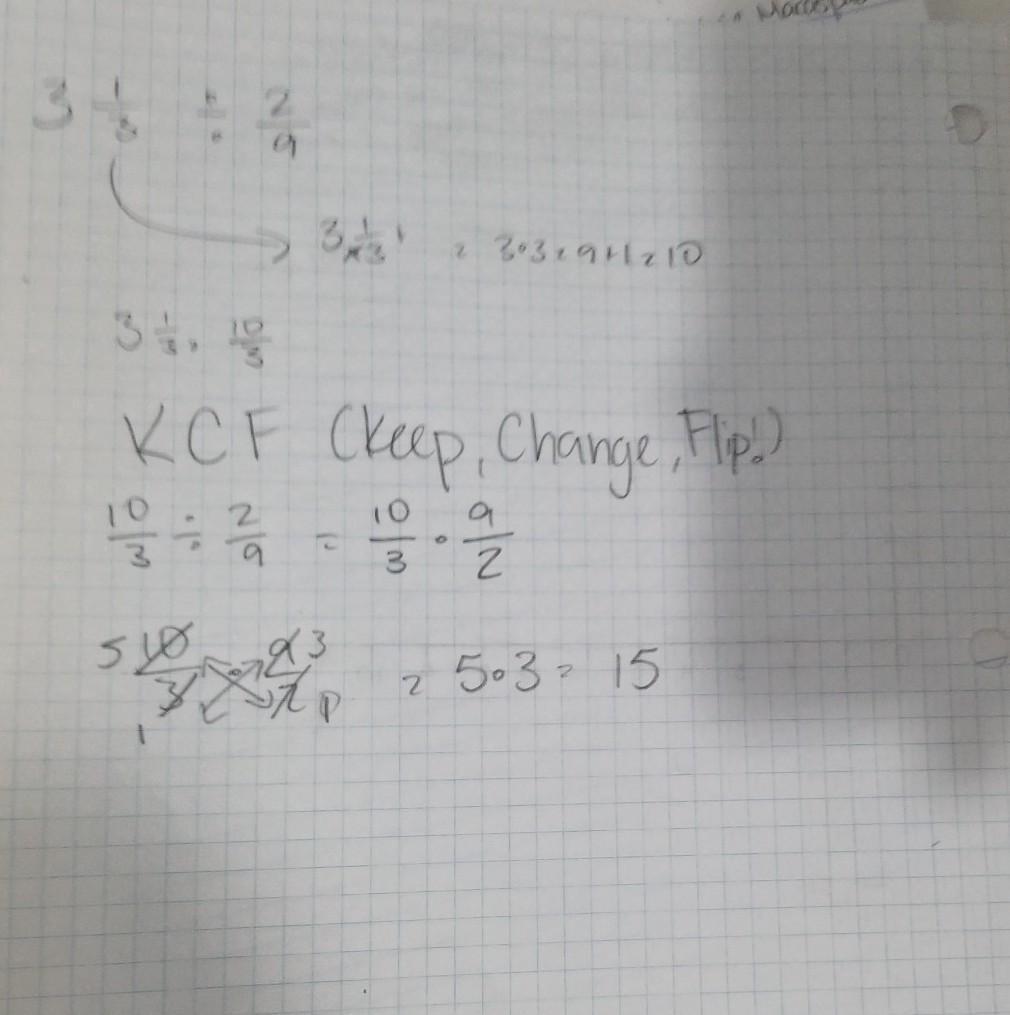 3 1/3 ÷ 2/9
3 1/3 = 3·3=9+1=10
3 1/3 = 10/3
KCF (Keep, Change, Flip!)
10/3 ÷ 2/9 = 10/3 · 9/2
5 10/3 1 · 9 3/2 1 = 5·3= 15